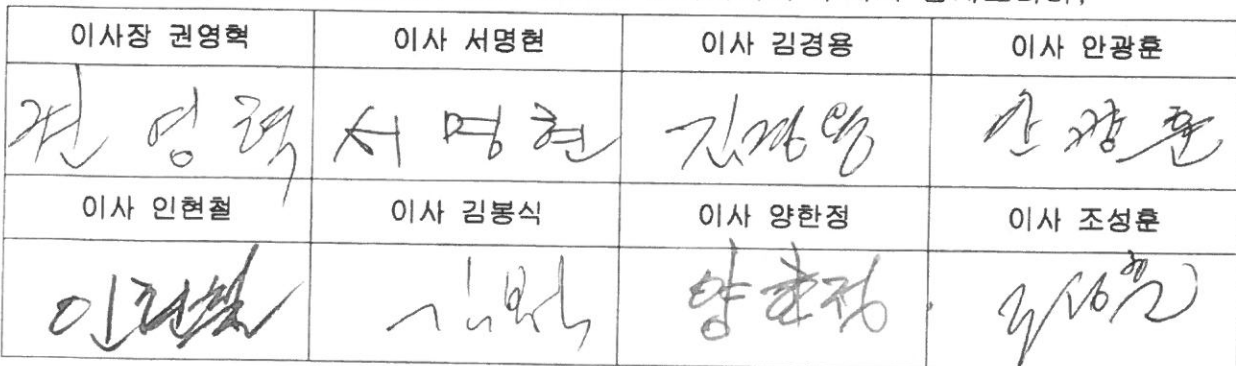 이사장 권영혁 이사 서명현 이사 김경용 이사 안광훈
권 영 혁 서 명 현 김경용 안 광 훈
이사 인현철 이사 김봉식 이사 양한정 이사 조성훈
인현철 김봉식 양한정 조성훈